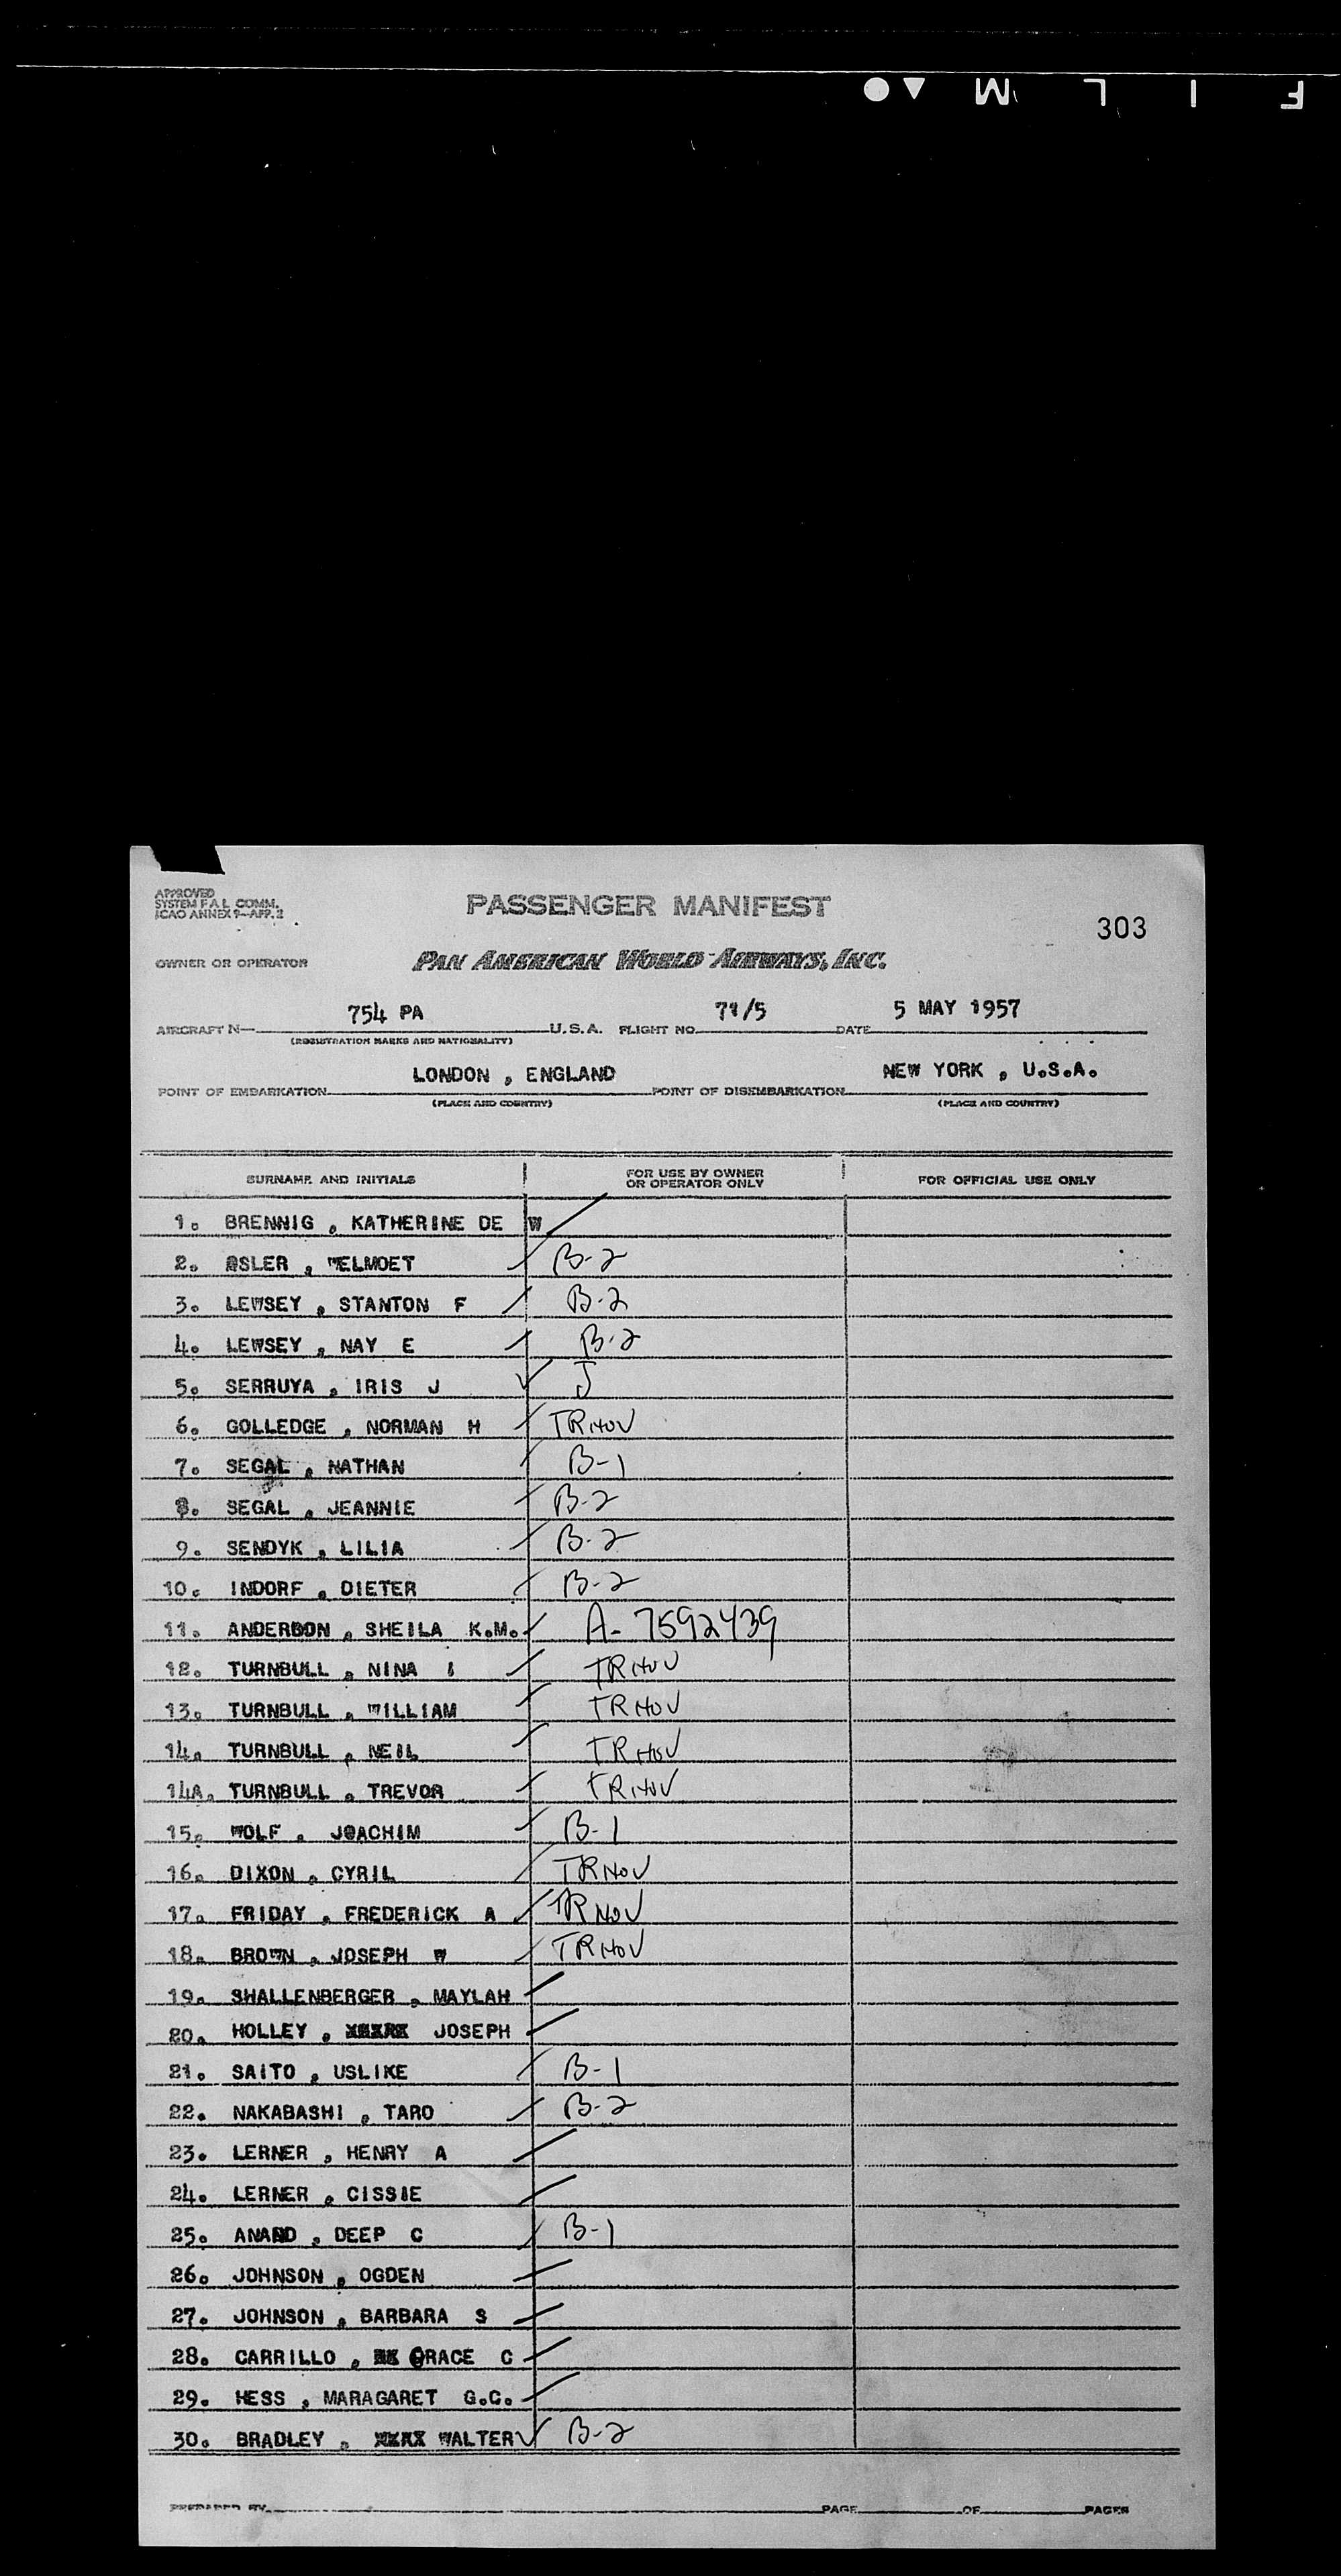 F I L M
APPROVED
SYSTEM F A L COMM.
ICAO ANNEX 9—APP. 2
PASSENGER MANIFEST
303
OWNER OR OPERATOR
PAN AMERICAN WORLD AIRWAYS, INC.
AIRCRAFT N— 754 PA U.S.A. FLIGHT NO. 71/5 DATE 5 MAY 1957
(REGISTRATION MARKS AND NATIONALITY)
POINT OF EMBARKATION LONDON , ENGLAND POINT OF DISEMBARKATION NEW YORK , U.S.A.
(PLACE AND COUNTRY) (PLACE AND COUNTRY)
SURNAME AND INITIALS FOR USE BY OWNER OR OPERATOR ONLY FOR OFFICIAL USE ONLY
1. BRENNIG , KATHERINE DE W
2. OSLER , WELMOET B-2
3. LEWSEY , STANTON F B-2
4. LEWSEY , NAY E B-2
5. SERRUYA , IRIS J J
6. GOLLEDGE , NORMAN H TRHOV
7. SEGAL , NATHAN B-1
8. SEGAL , JEANNIE B-2
9. SENDYK , LILIA B-2
10. INDORF , DIETER B-2
11. ANDERSON , SHEILA K.M. A-7592439
12. TURNBULL , NINA I TRHOV
13. TURNBULL , WILLIAM TRHOV
14. TURNBULL , NEIL TRHOV
14A. TURNBULL , TREVOR TRHOV
15. WOLF , JOACHIM B-1
16. DIXON , CYRIL TRHOV
17. FRIDAY , FREDERICK A TRHOV
18. BROWN , JOSEPH W TRHOV
19. SHALLENBERGER , MAYLAH
20. HOLLEY , JOSEPH
21. SAITO , USLIKE B-1
22. NAKABASHI , TARO B-2
23. LERNER , HENRY A
24. LERNER , CISSIE
25. ANAND , DEEP C B-1
26. JOHNSON , OGDEN
27. JOHNSON , BARBARA S
28. CARRILLO , GRACE C
29. HESS , MARAGARET G.C.
30. BRADLEY , WALTER B-2
PREPARED BY PAGE OF PAGES